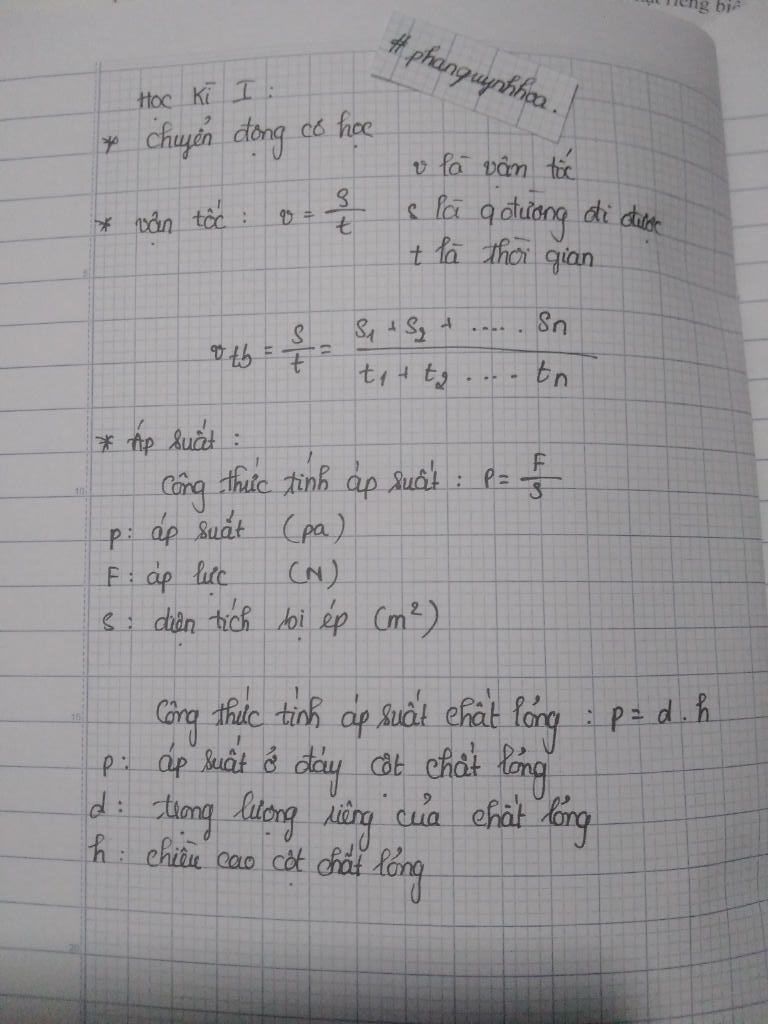 tiêng biê
#phanquynhhoa.
Học Kì I :
* chuyển động cơ học
v là vận tốc
* vận tốc : v = s/t
s là qđường đi được
t là thời gian
vtb = s/t = s1 + s2 + ..... sn / t1 + t2 .... tn
* Áp suất :
Công thức tính áp suất : p = F/s
p : áp suất (pa)
F : áp lực (N)
s : diện tích bị ép (m²)
Công thức tính áp suất chất lỏng : p = d . h
p : áp suất ở đáy cột chất lỏng
d : trọng lượng riêng của chất lỏng
h : chiều cao cột chất lỏng
5
10
15
20